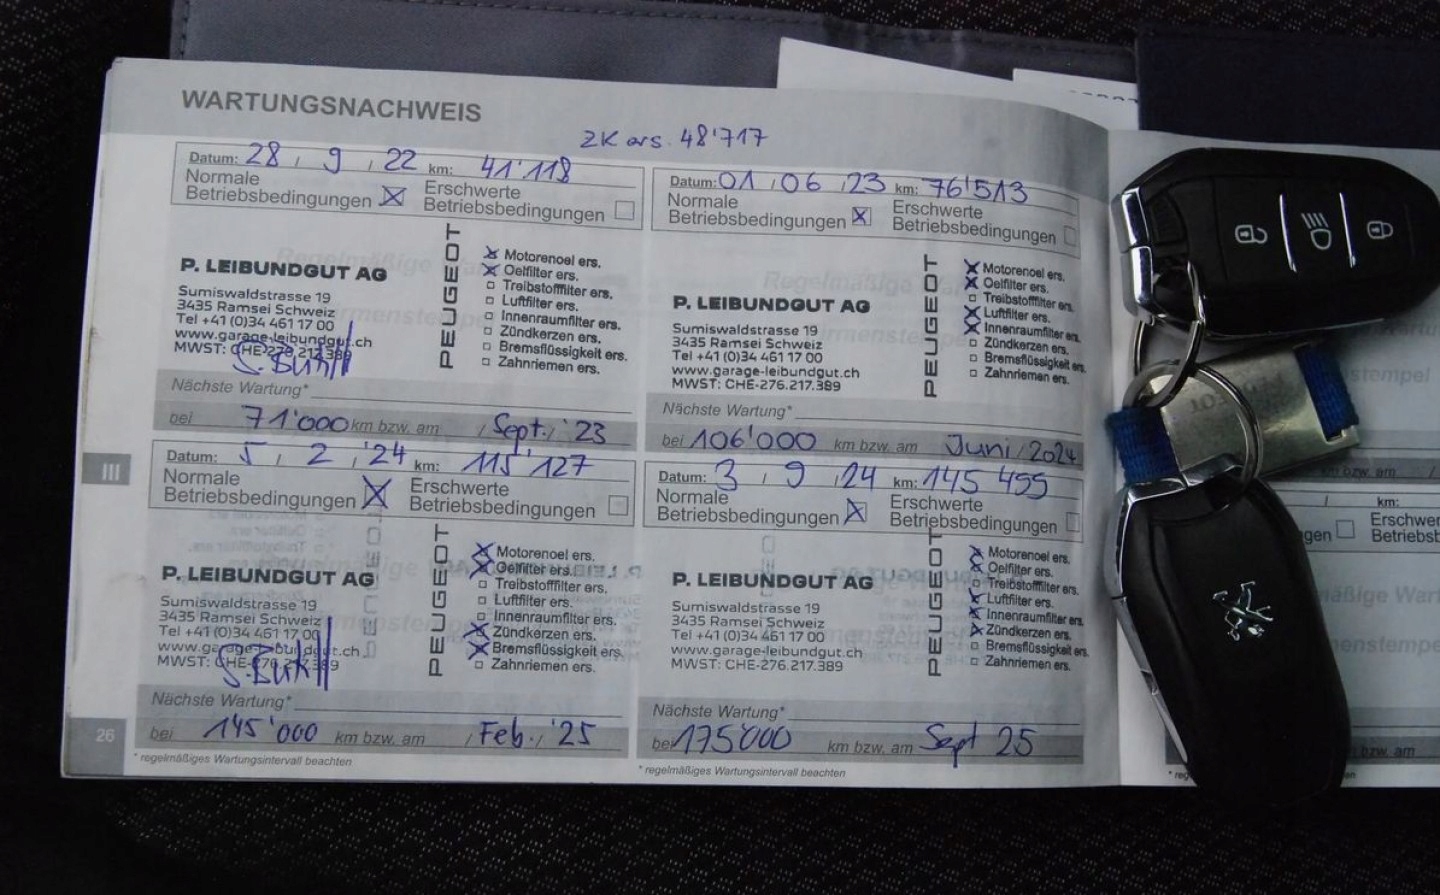 WARTUNGSNACHWEIS
ZK ers. 48'717
Datum: 28 / 9 / 22 km: 41'118
Normale
Betriebsbedingungen
Erschwerte
Betriebsbedingungen
P. LEIBUNDGUT AG
Sumiswaldstrasse 19
3435 Ramsei Schweiz
Tel +41 (0)34 461 17 00
www.garage-leibundgut.ch
MWST: CHE-276.217.389
PEUGEOT
Motorenoel ers.
Oelfilter ers.
Treibstofffilter ers.
Luftfilter ers.
Innenraumfilter ers.
Zündkerzen ers.
Bremsflüssigkeit ers.
Zahnriemen ers.
Nächste Wartung*
bei 71'000 km bzw. am / Sept. / '23
Datum: 01 / 06 / 23 km: 76'513
Normale
Betriebsbedingungen
Erschwerte
Betriebsbedingungen
P. LEIBUNDGUT AG
Sumiswaldstrasse 19
3435 Ramsei Schweiz
Tel +41 (0)34 461 17 00
www.garage-leibundgut.ch
MWST: CHE-276.217.389
PEUGEOT
Motorenoel ers.
Oelfilter ers.
Treibstofffilter ers.
Luftfilter ers.
Innenraumfilter ers.
Zündkerzen ers.
Bremsflüssigkeit ers.
Zahnriemen ers.
Nächste Wartung*
bei 106'000 km bzw. am Juni / 2024
III
Datum: 5 / 2 / '24 km: 115'127
Normale
Betriebsbedingungen
Erschwerte
Betriebsbedingungen
P. LEIBUNDGUT AG
Sumiswaldstrasse 19
3435 Ramsei Schweiz
Tel +41 (0)34 461 17 00
www.garage-leibundgut.ch
MWST: CHE-276.217.389
PEUGEOT
Motorenoel ers.
Oelfilter ers.
Treibstofffilter ers.
Luftfilter ers.
Innenraumfilter ers.
Zündkerzen ers.
Bremsflüssigkeit ers.
Zahnriemen ers.
Nächste Wartung*
bei 145'000 km bzw. am / Feb. / '25
* regelmäßiges Wartungsintervall beachten
Datum: 3 / 9 / 24 km: 145 455
Normale
Betriebsbedingungen
Erschwerte
Betriebsbedingungen
P. LEIBUNDGUT AG
Sumiswaldstrasse 19
3435 Ramsei Schweiz
Tel +41 (0)34 461 17 00
www.garage-leibundgut.ch
MWST: CHE-276.217.389
PEUGEOT
Motorenoel ers.
Oelfilter ers.
Treibstofffilter ers.
Luftfilter ers.
Innenraumfilter ers.
Zündkerzen ers.
Bremsflüssigkeit ers.
Zahnriemen ers.
Nächste Wartung*
bei 175'000 km bzw. am Sept 25
* regelmäßiges Wartungsintervall beachten
26
km bzw. am /
/ km: